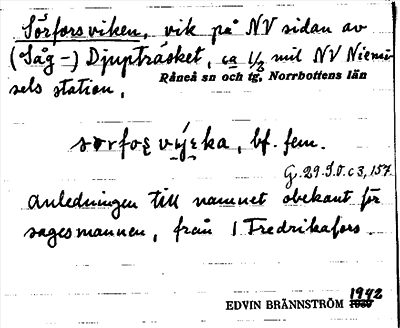 Sörforsviken, vik på NV sidan av
(Såg-) Djupträsket, ca 1/2 mil NV Niemi-
Råneå sn och tg, Norrbottens län
sels station,
bf. fem.
G. 29. c 3, 157
Anledningen till namnet obekant för
sagesmannen, från Fredrikafors.
1942
EDVIN BRÄNNSTRÖM 1939